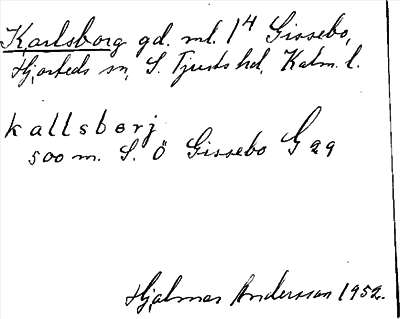 Karlsborg gd. ml. 1⁴ Gissebo,
Hjorteds sn, S. Tjusts hd, Kalm. l.
kallsbørj
500 m. S. Ö Gissebo G 29
Hjalmar Andersson 1952.